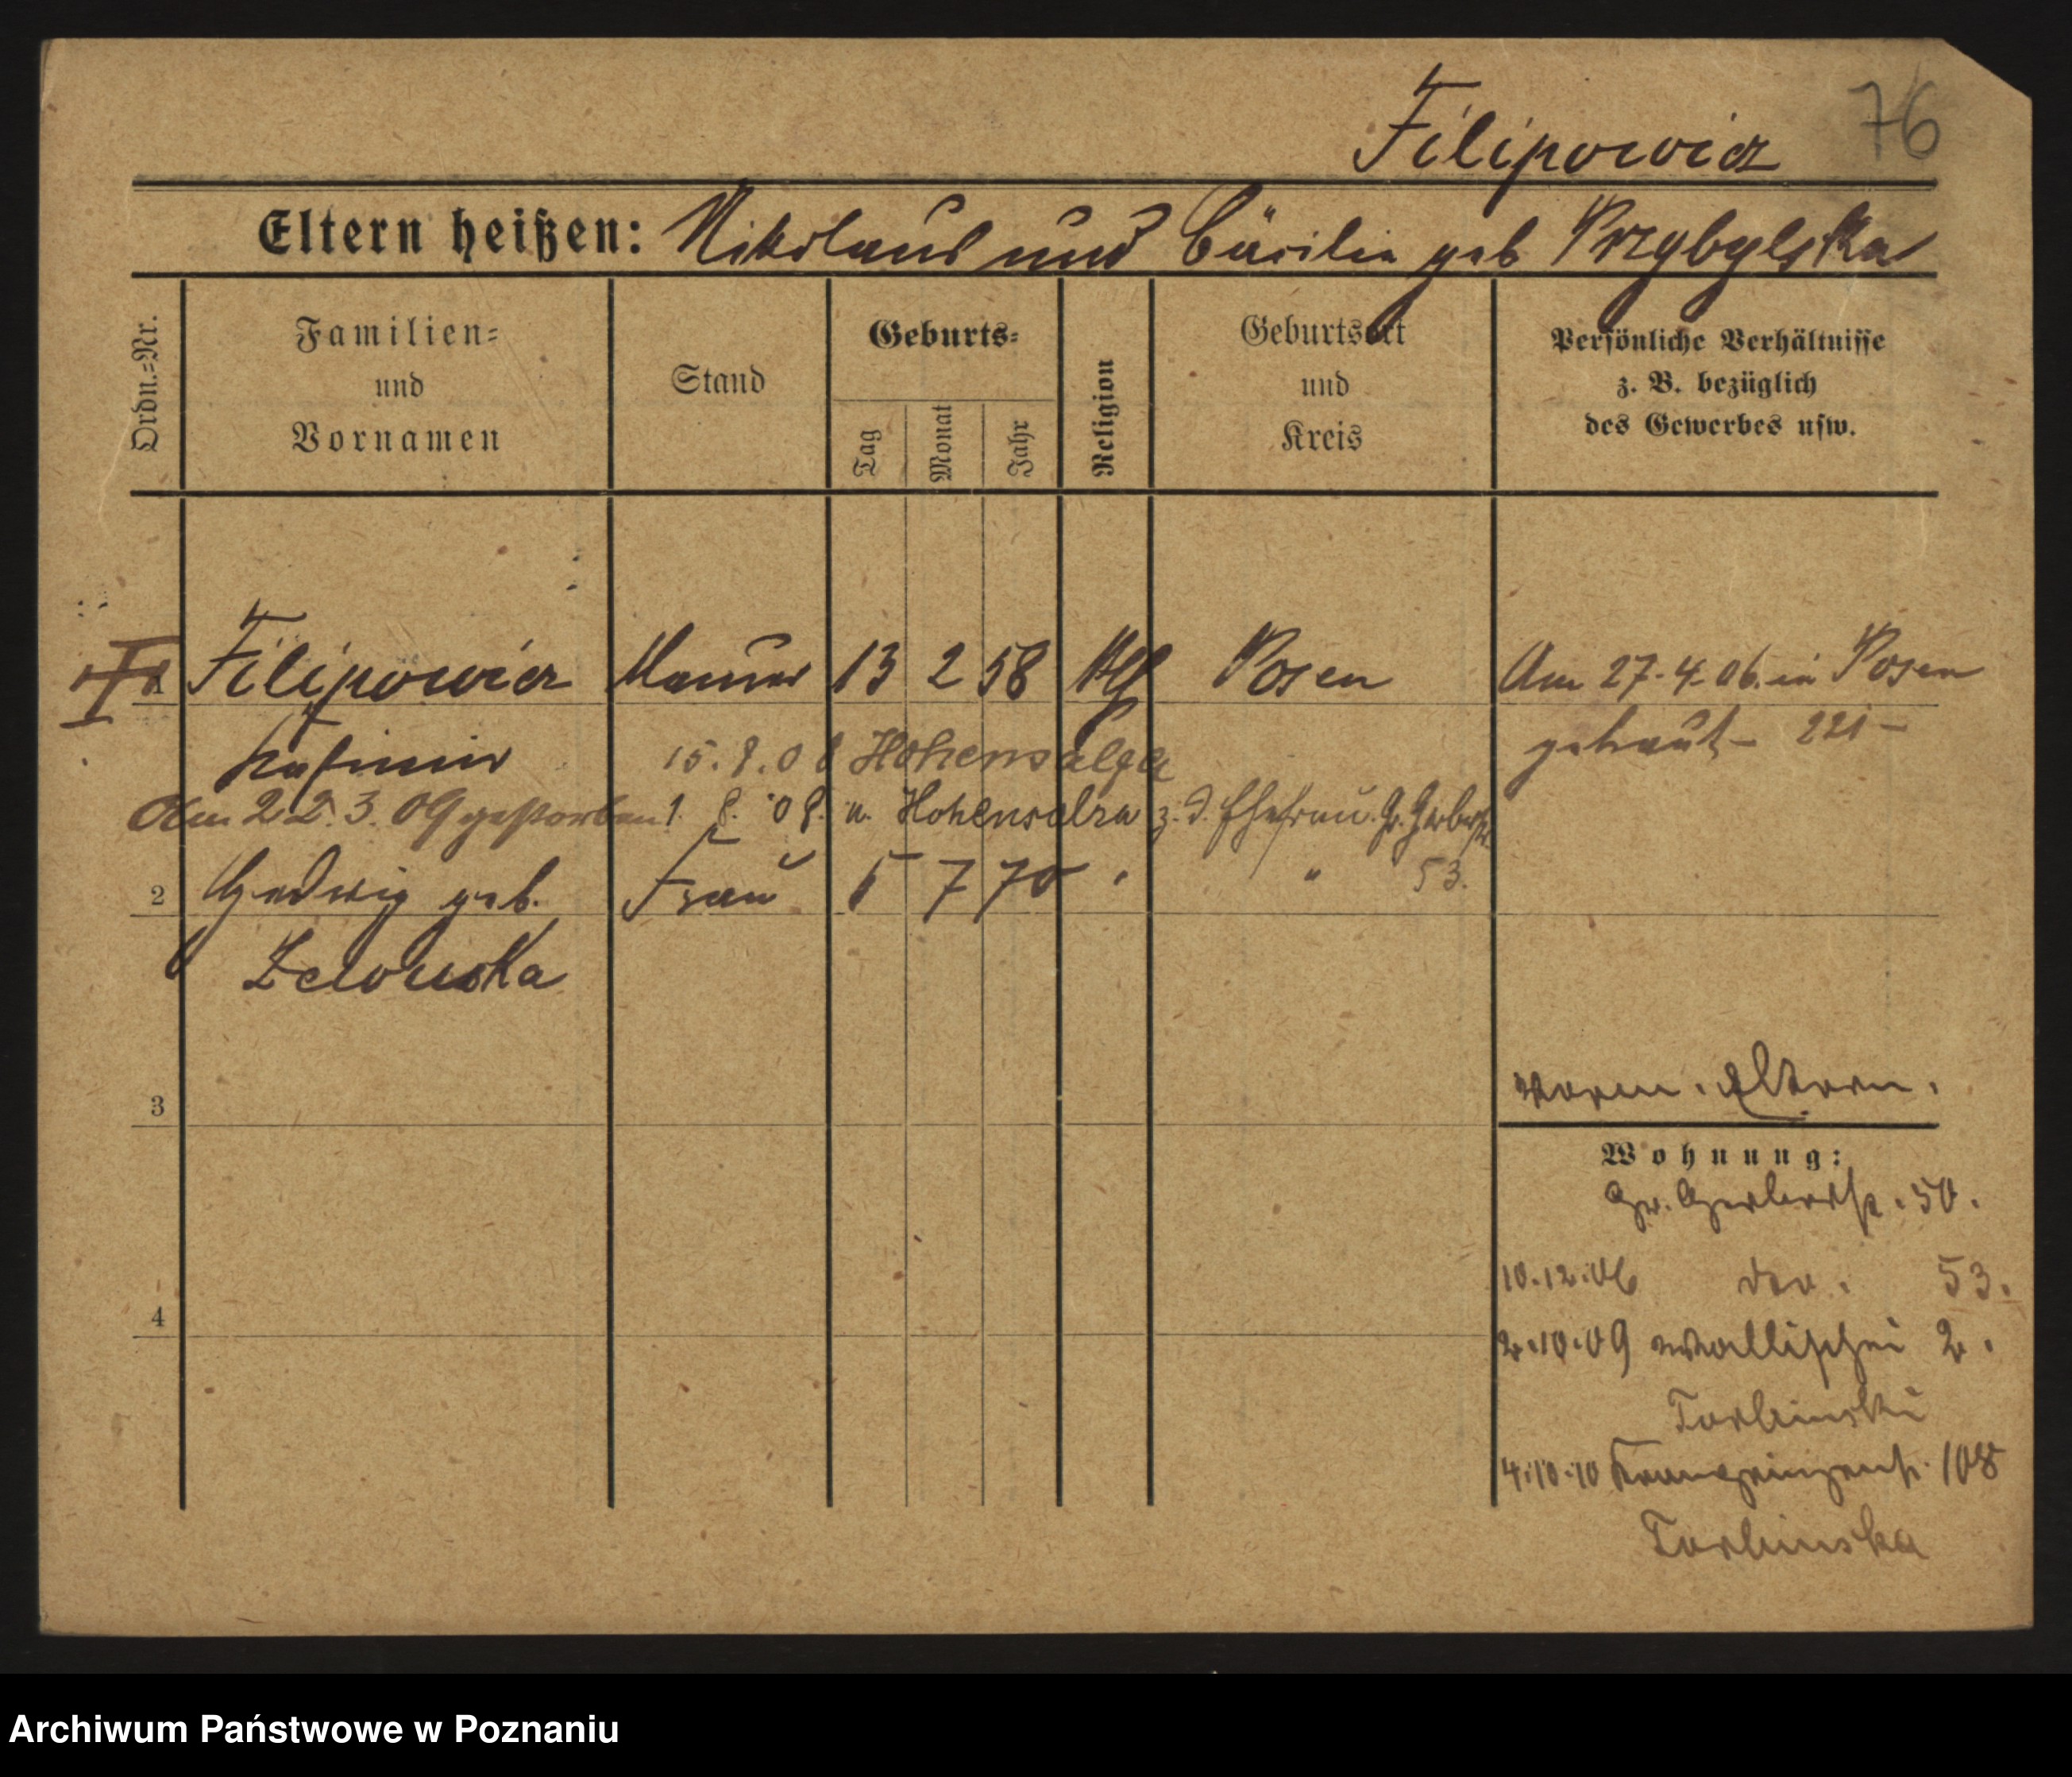 Filipowicz 76
Eltern heißen: Nikolaus und Cäcilie geb Przybylska
Ordn.-Nr.
Familien-
und
Vornamen
Stand
Geburts-
Tag
Monat
Jahr
Religion
Geburtsort
und
Kreis
Persönliche Verhältnisse
z. B. bezüglich
des Gewerbes usw.
1 Filipowicz Maurer 13 2 58 Posen Am 27.4.06 in Posen
Kasimir 15.8.08 Hohensalza getraut – 221 –
Am 22.3.09 gestorben 1. 8. 08. n. Hohensalza z. d. Ehefrau. Gr. Gerberstr
2 Hedwig geb. Frau 5 7 70 " " 53.
Zelowska
3
vorm. Eltern.
Wohnung:
Gr. Gerberstr. 50.
10.12.06 do. 53.
4
2.10.09 Wallischei 2.
Torlinski
4.10.10 Kronprinzenstr. 108
Torlinska
Archiwum Państwowe w Poznaniu